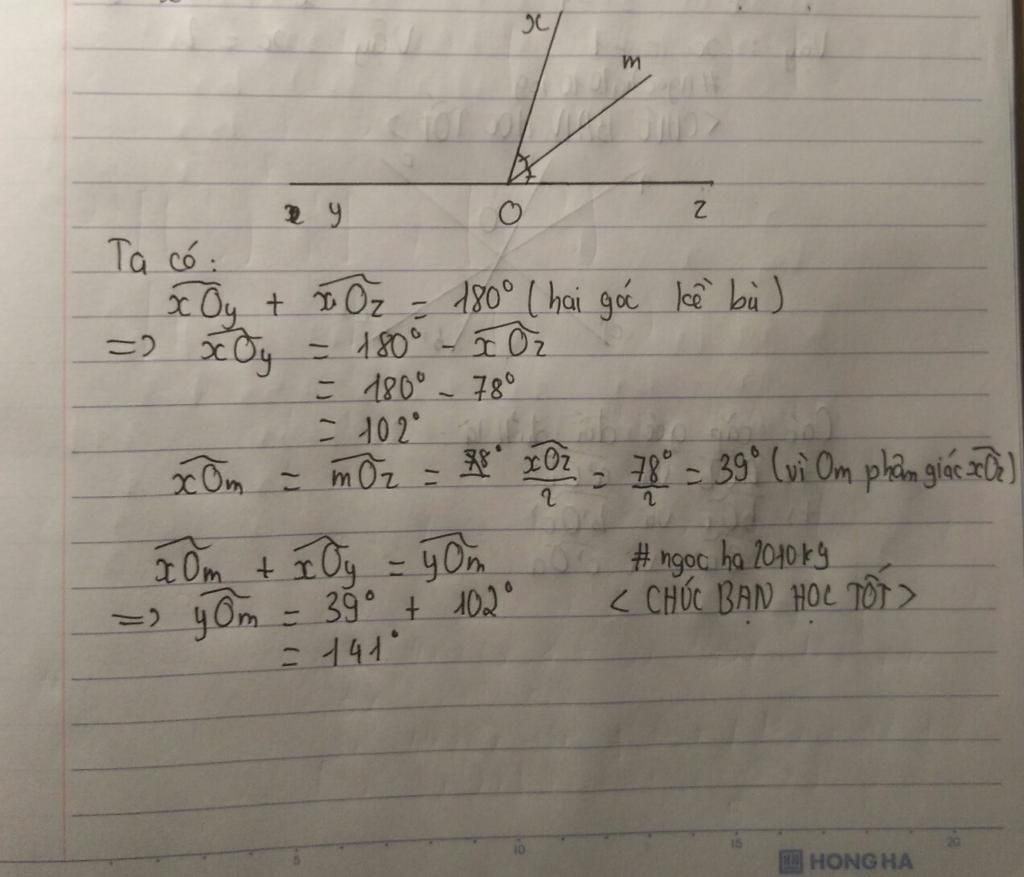 x
m
y O z
Ta có:
xOy + xOz = 180° (hai góc kề bù)
=> xOy = 180° - xOz
= 180° - 78°
= 102°
xOm = mOz = xOz/2 = 78°/2 = 39° (vì Om phân giác xOz)
xOm + xOy = yOm #ngoc ha 2010kg
=> yOm = 39° + 102° < CHÚC BẠN HỌC TỐT >
= 141°
5 10 15 20
HONG HA